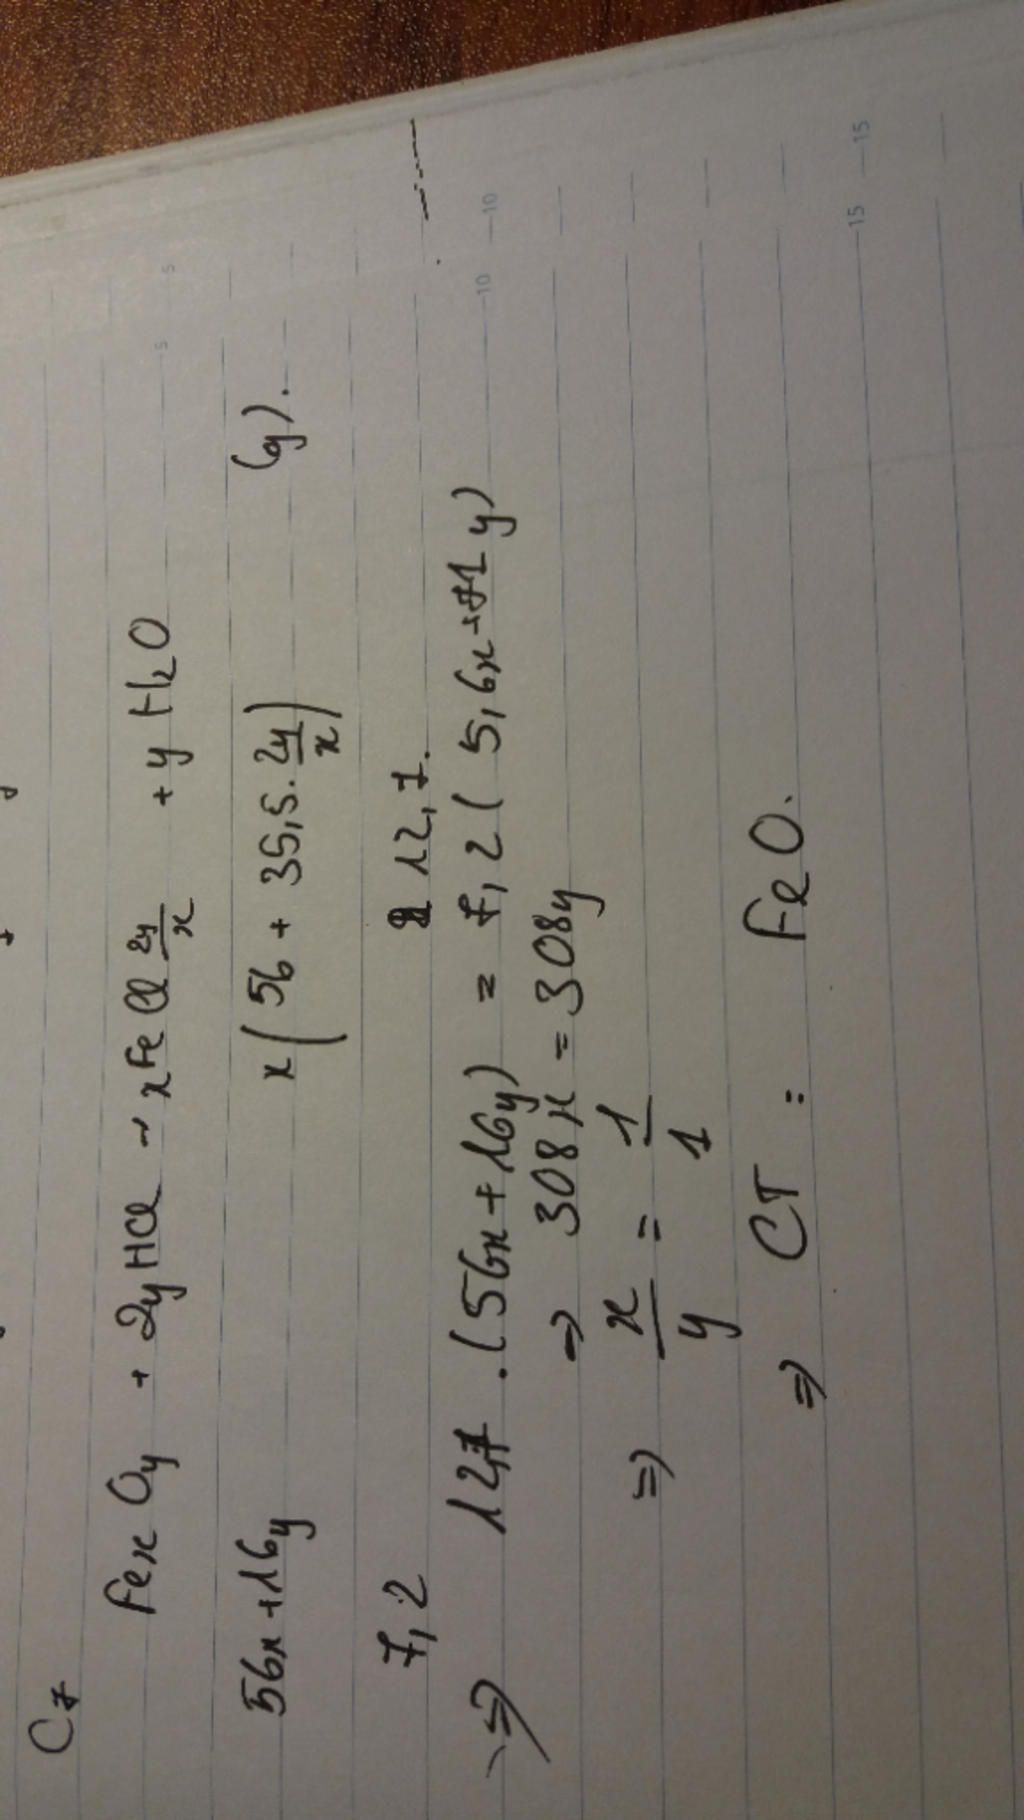 C7
FexOy + 2yHCl → xFeCl 2y/x + yH2O
56x+16y x(56 + 35,5. 2y/x) (g).
7,2 12,7.
⇒ 12,7 .(56x+16y) = 7,2( 5,6x+71y)
⇒ 308x = 308y
⇒ x/y = 1/1
⇒ CT : FeO.
5
5
10
10
15
15